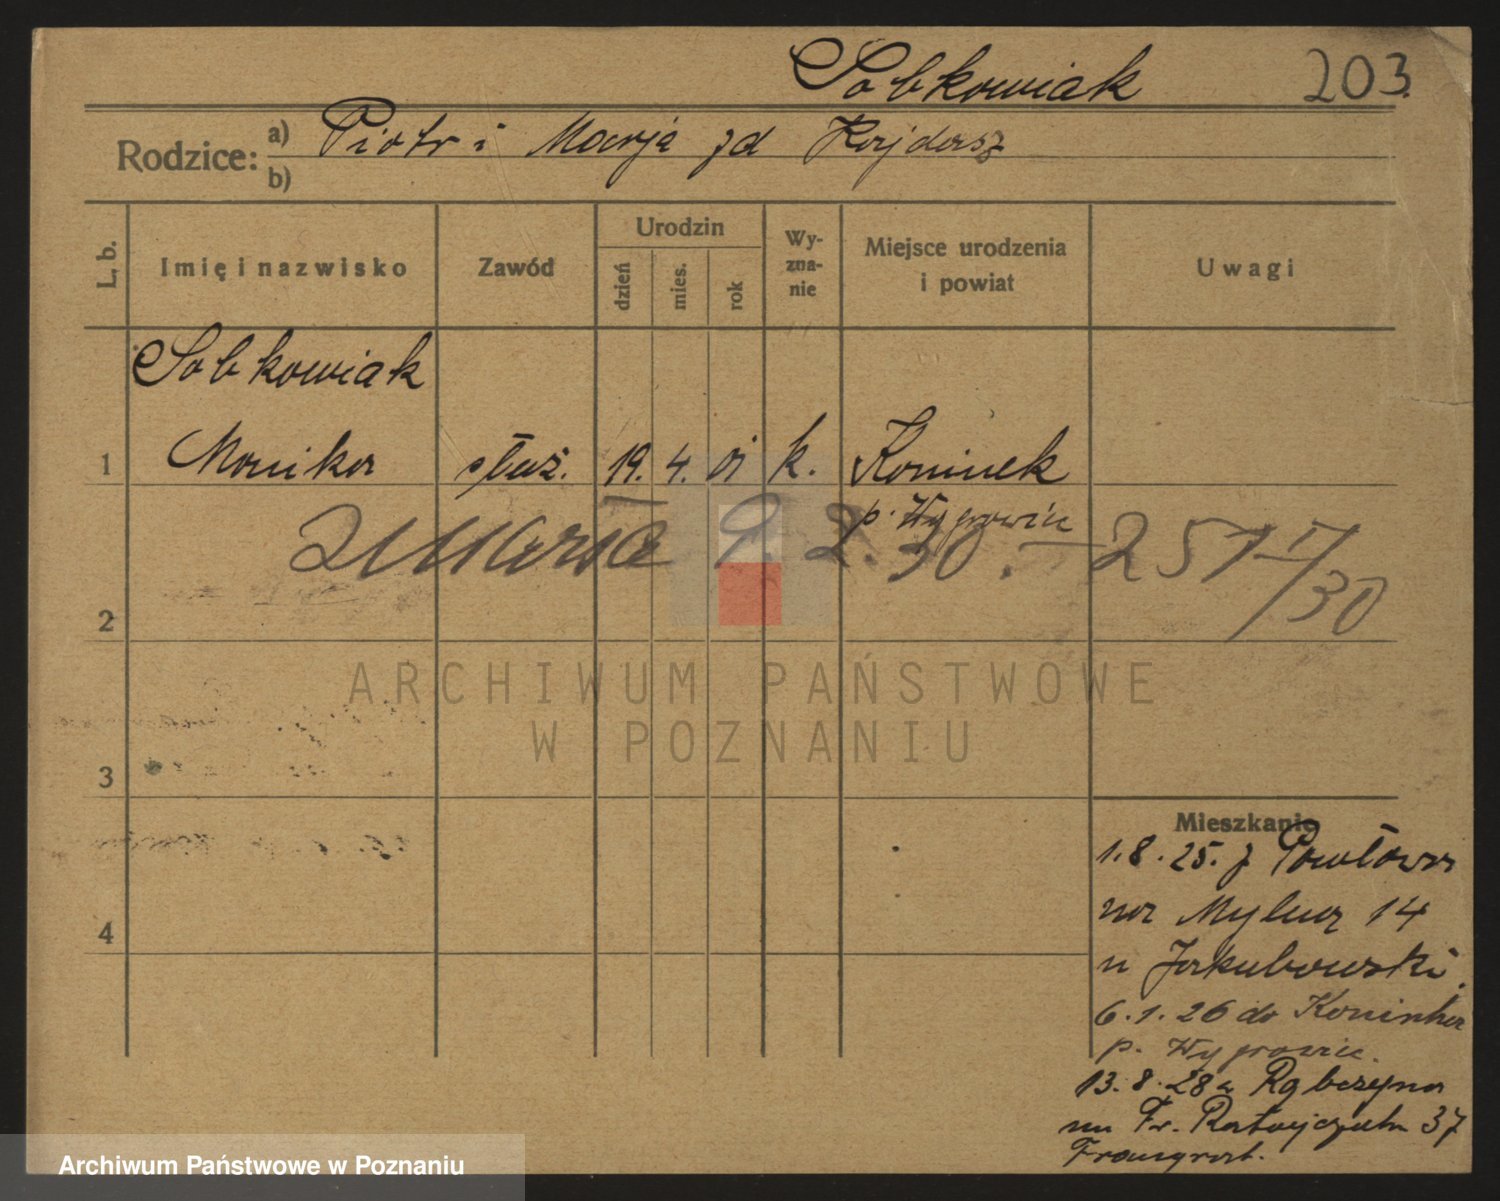 Sobkowiak 203.
Rodzice: a) Piotr i Marja zd Kajdasz
b)
L. b. Imię i nazwisko Zawód Urodzin dzień mies. rok Wy-zna-nie Miejsce urodzenia i powiat Uwagi
Sobkowiak
1 Monika służ. 19. 4. 01 k. Koninek
p. Wągrowiec
zmarła 9. 2. 30. — 251
/30
2
ARCHIWUM PAŃSTWOWE
W POZNANIU
3
Mieszkanie
1.8.25. z
na Mylna 14
u Jakubowski.
4
6.1.26 do Koninka
p. Wągrowiec.
13.8.28 z Rąbczyna
na Fr. Ratajczaka 37
Archiwum Państwowe w Poznaniu